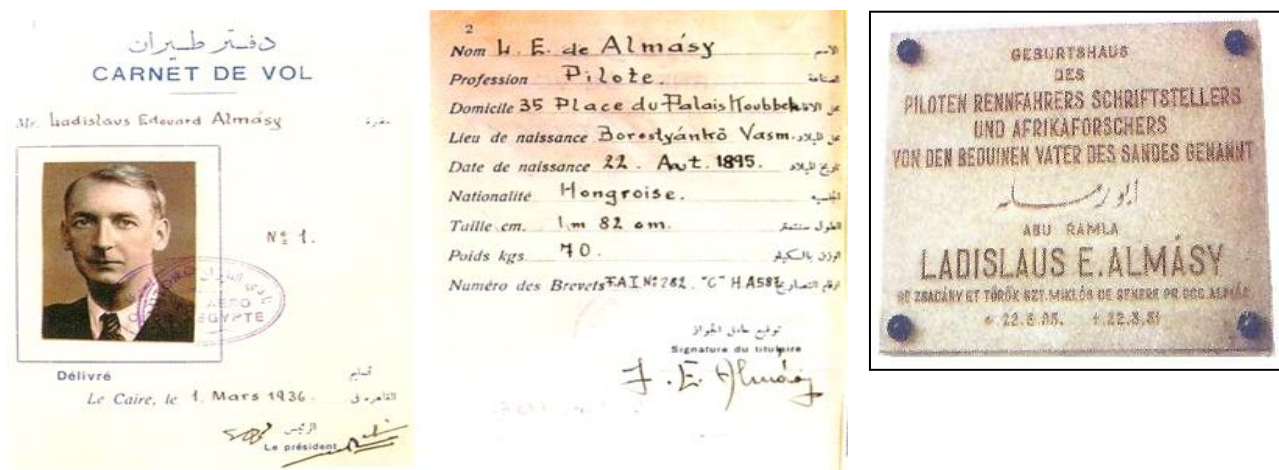 دفتر طيران
CARNET DE VOL
Mr. Ladislaus Edouard Almásy
Nº 1.
AERO
EGYPTE
Délivré
Le Caire, le 1. Mars 1936.
القاهرة في
الرئيس
Le président
2
Nom L. E. de Almásy الاسم
Profession Pilote. الصناعة
Domicile 35 Place du Palais Koubbeh
Lieu de naissance Borostyánkö Vasm.
Date de naissance 22. Aut. 1895. تاريخ الميلاد
Nationalité Hongroise. الجنسية
Taille cm. 1m 82 cm. الطول سنتمتر
Poids kgs 70. الوزن بالكيلو
Numéro des Brevets F.A.I. Nº 282. "C"
توقيع حامل الجواز
Signature du titulaire
GEBURTSHAUS
DES
PILOTEN RENNFAHRERS SCHRIFTSTELLERS
UND AFRIKAFORSCHERS
VON DEN BEDUINEN VATER DES SANDES GENANNT
ابو رمله
ABU RAMLA
LADISLAUS E. ALMÁSY
DE ZSADÁNY ET TÖRÖK SZT. MIKLÓS DE GENERE
* 22.8.95. † 22.3.51